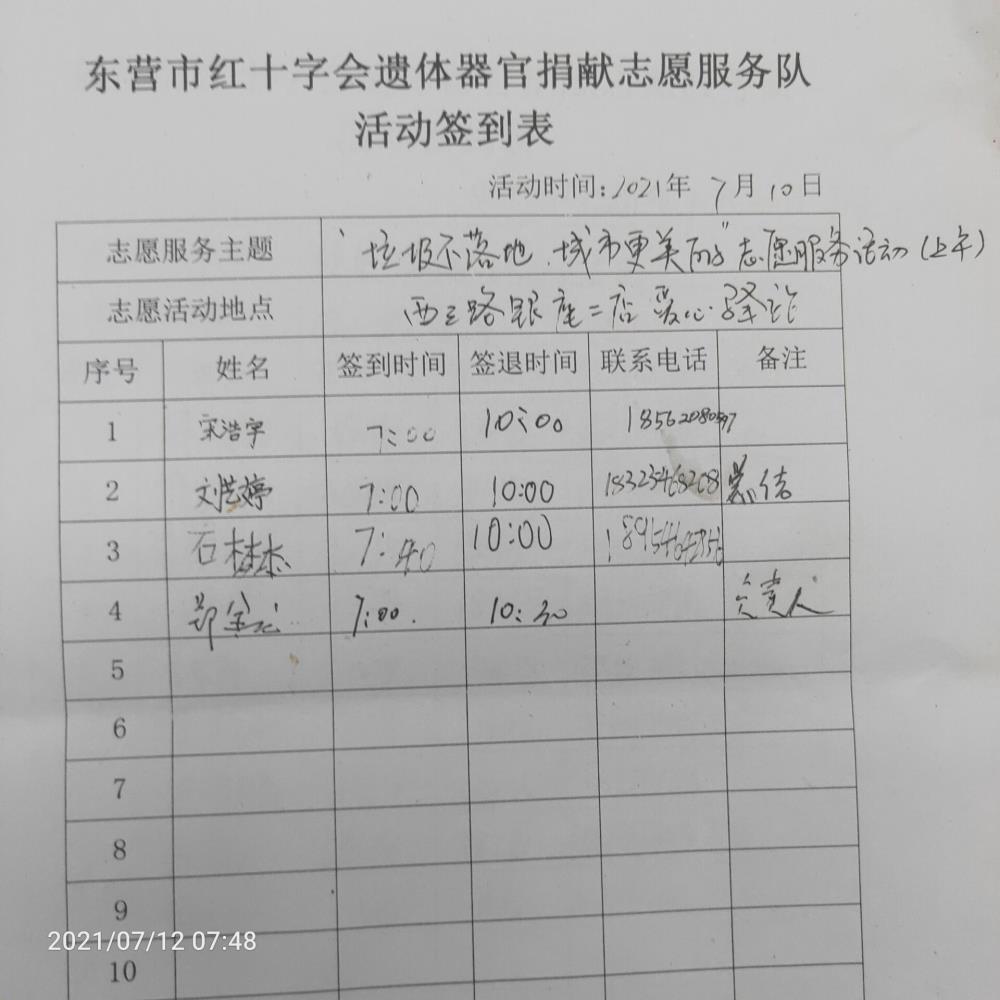 东营市红十字会遗体器官捐献志愿服务队
活动签到表
活动时间:2021年 7月10日
志愿服务主题 "垃圾不落地、城市更美丽"志愿服务活动(上午)
志愿活动地点 西三路银座二店爱心驿站
序号 姓名 签到时间 签退时间 联系电话 备注
1 宋浩宇 7:00 10:00
2 刘艺婷 7:00 10:00 18325468208 总结
3 石 7:40 10:00
4 郑金 7:00. 10:30 负责人
5
6
7
8
9
10
2021/07/12 07:48